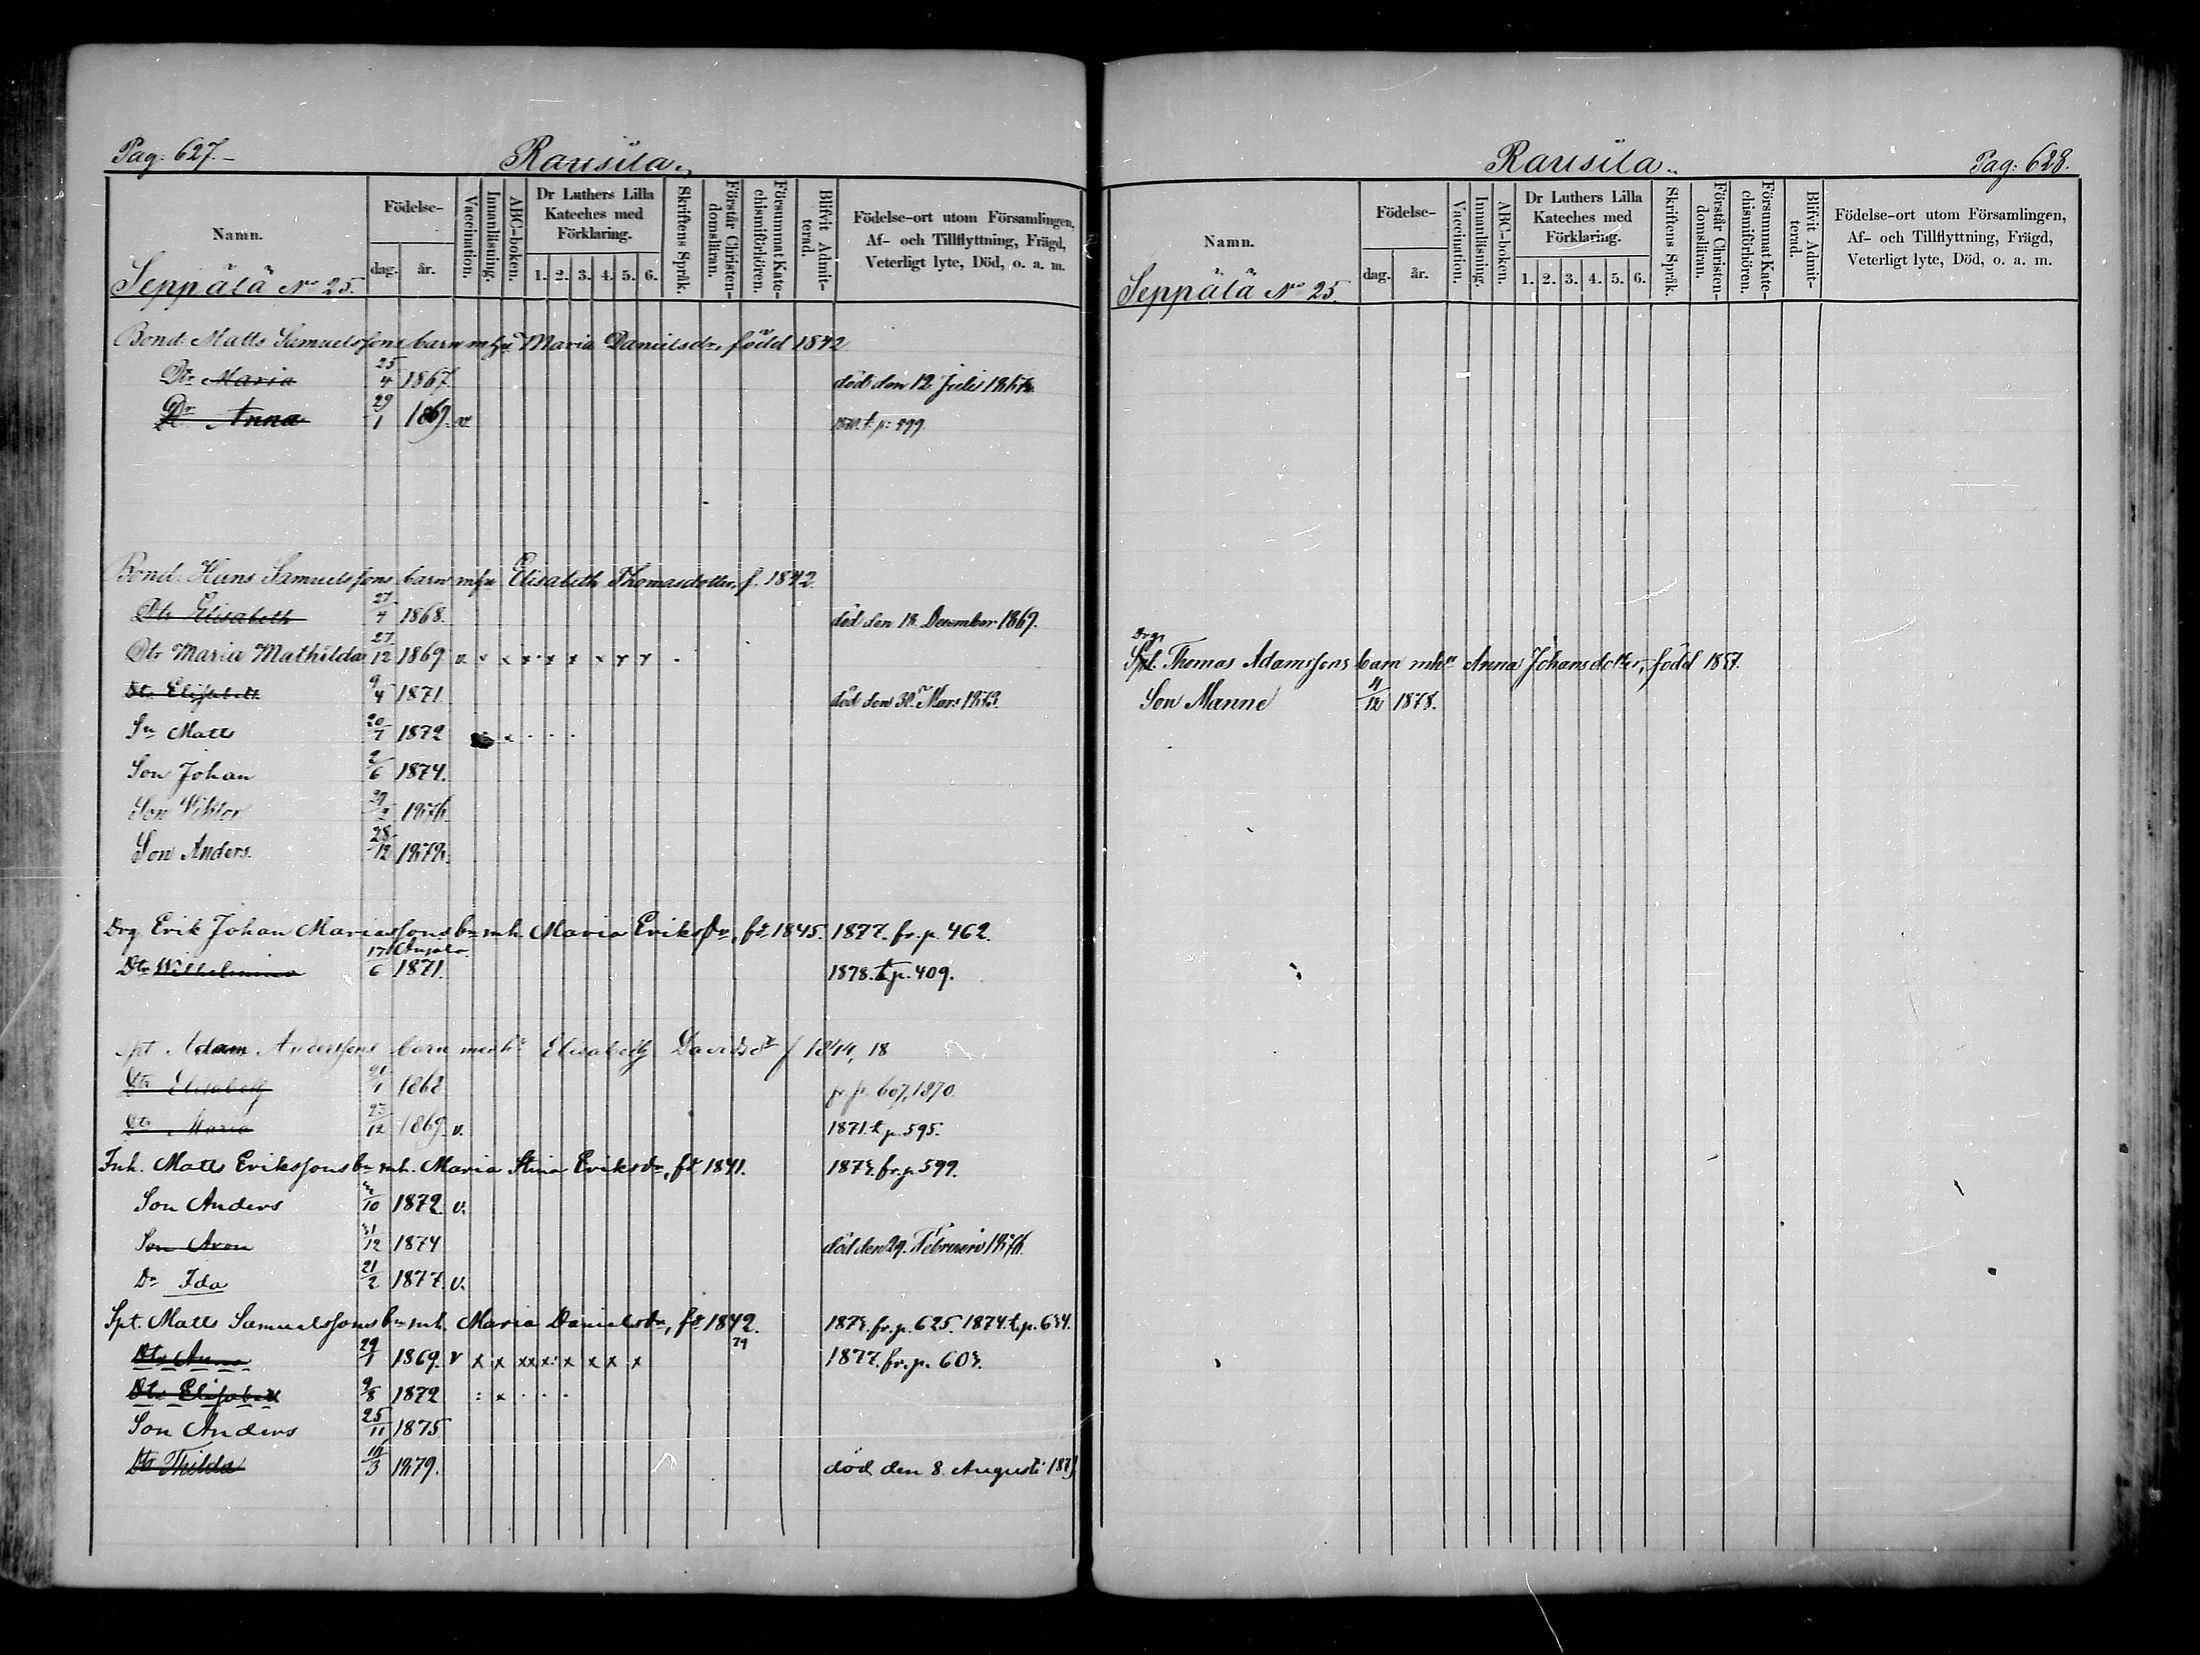 Pag: 627.
Rausila.
Namn.
Födelse-
dag.
år.
Vaccination.
Innanläsning.
ABC-boken.
Dr Luthers Lilla
Kateches med
Förklaring.
1. 2. 3. 4. 5. 6.
Skriftens Språk.
Förstår Christen-
domsläran.
Försummat Kate-
chismiförhören.
Blifvit Admit-
terad.
Födelse-ort utom Församlingen,
Af- och Tillflyttning, Frägd,
Veterligt lyte, Död, o. a. m.
Seppälä No 25.
Bond. Matts Samuelssons barn mhu Maria Danielsdr, född 1842
Dr Maria 25/4 1867. död den 12 Julii
Dr Anna 29/1 1869. v. t. p. 499.
Bond. Hans Samuelssons barn mhu Elisabeth Thomasdotter, f. 1842
Dtr Elisabeth 27/4 1868. död den 18. December 1869.
Dtr Maria Mathilda 27/12 1869 v. x x x x x x x x
Dtr Elisabeth 9/4 1871. död den 30. Mars 1873.
Sn Matts 20/7 1872
Son Johan 2/6 1874.
Son Viktor 29/2 1876.
Son Anders. 28/12 1878.
Drg Erik Johan Mariassons bn mh. Maria Eriksdr, fd 1845. 1877. fr. p. 462.
Anjala.
Dtr Wilhelmina 17/6 1871. 1878. t. p. 409.
Spt Adam Anderssons barn med hu Elisabeth Davidsdr f 1844, 18
Dtr Elisabeth 21/1 1868 fr p. 607, 1870.
Dtr Maria 23/12 1869. v. 1871. t. p. 595.
Inh. Matts Erikssons bn mh. Maria Stina Eriksdr, fd 1841. fr. p. 599.
Son Anders /10 1872. v.
Son Aron 31/12 1874 död den 29. Februari 1876.
Dr Ida 21/2 1877. v.
Spt. Matts Samuelssons bn mh. Maria Danielsdr, fd 1842. fr. p. 625. 1874. t. p. 634.
Dtr Anna 29/1 1869. v x x xx x x x x x 79 1877. fr. p. 603.
Dtr Elisabeth 9/8 1872 : x . . .
Son Anders 25/11 1875
Dtr Thilda 16/3 1879. död den 8. Augusti 1879
Rausila.
Pag: 628.
Namn.
Födelse-
dag.
år.
Vaccination.
Innanläsning.
ABC-boken.
Dr Luthers Lilla
Kateches med
Förklaring.
1. 2. 3. 4. 5. 6.
Skriftens Språk.
Förstår Christen-
domsläran.
Försummat Kate-
chismiförhören.
Blifvit Admit-
terad.
Födelse-ort utom Församlingen,
Af- och Tillflyttning, Frägd,
Veterligt lyte, Död, o. a. m.
Seppälä No 25.
Drg
Spt. Thomas Adamssons barn mhu Anna Johansdotter, född 1857.
Son Manne 4/12 1878.